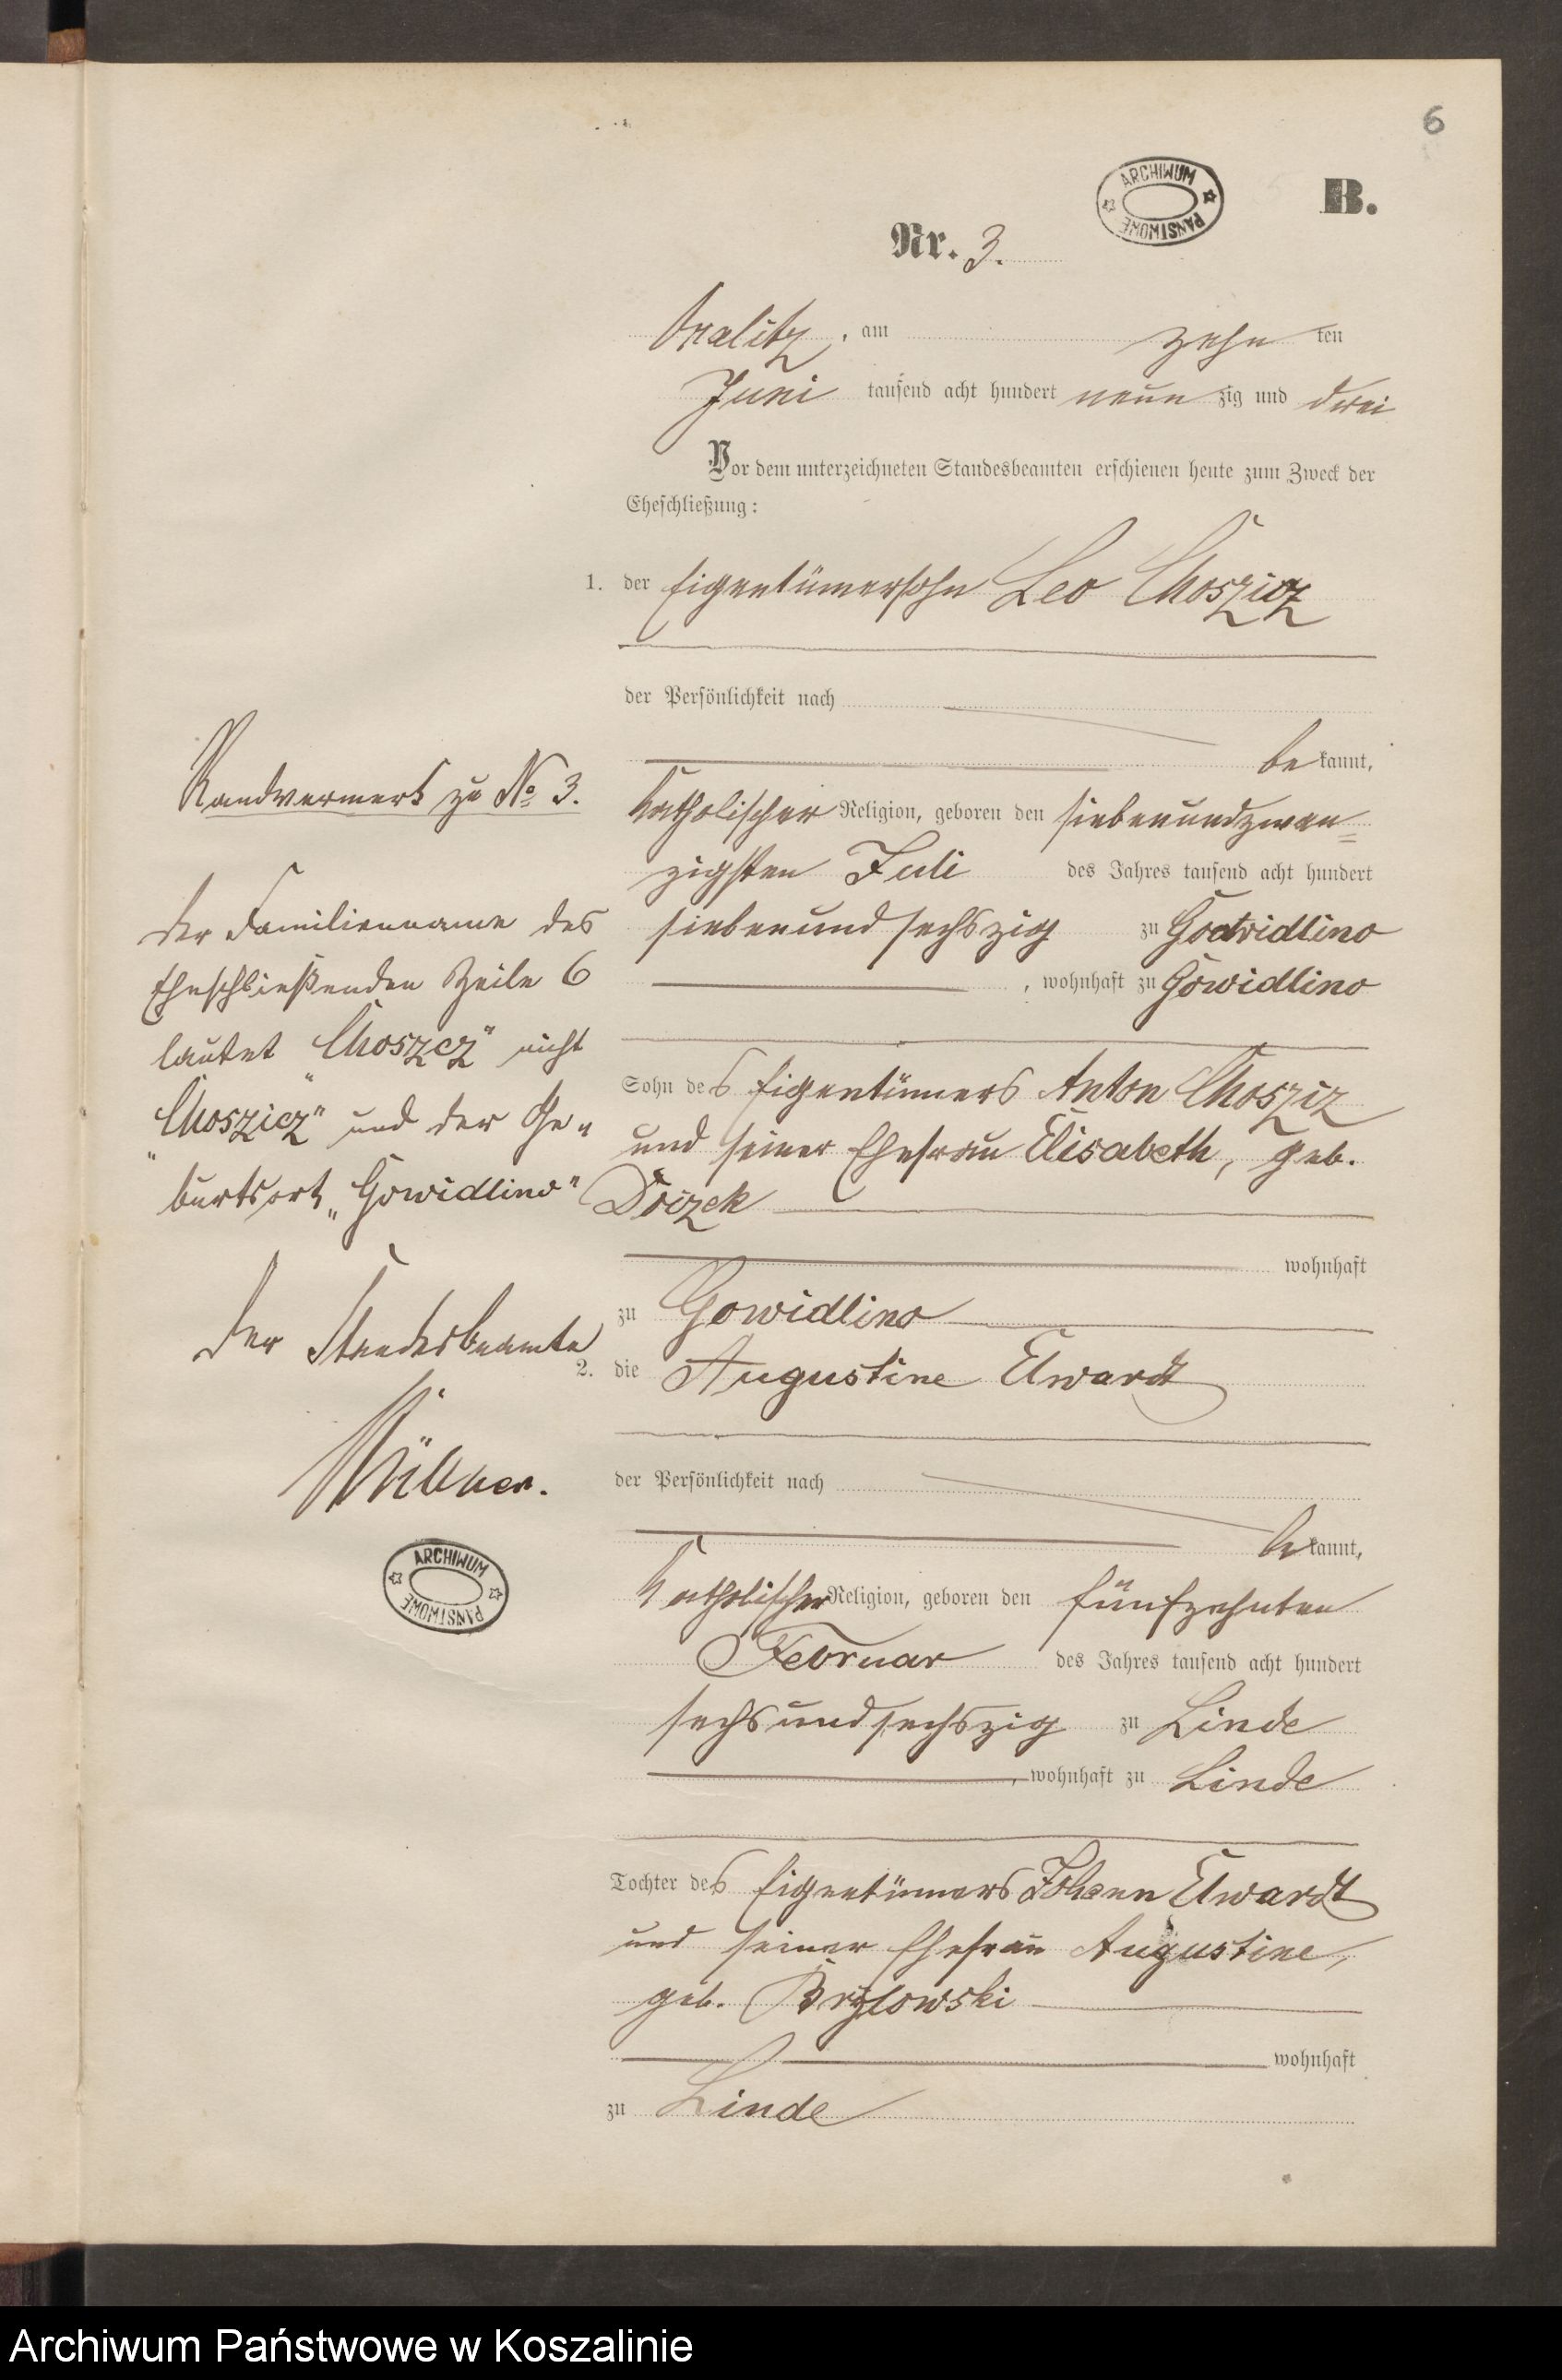 6
ARCHIWUM PAŃSTWOWE
B.
Nr. 3.
Oslalitz, am zehn ten
Juni tausend acht hundert neun zig und drei
Vor dem unterzeichneten Standesbeamten erschienen heute zum Zweck der
Eheschließung:
1. der Eigentümersohn Leo Choszicz
der Persönlichkeit nach
be kannt,
katholischer Religion, geboren den siebenundzwan=
zigsten Juli des Jahres tausend acht hundert
siebenundsechszig zu Gowidlino
, wohnhaft zu Gowidlino
Sohn des Eigentümers Anton Choszcz
und seiner Ehefrau Elisabeth, geb.
wohnhaft
zu Gowidlino
2. die Augustine Elwardt
der Persönlichkeit nach
be kannt,
katholischer Religion, geboren den fünfzehnten
Februar des Jahres tausend acht hundert
sechsundsechszig zu Linde
, wohnhaft zu Linde
Tochter des Eigentümers Johann Elwardt
und seiner Ehefrau Augustine,
geb. Brzlowski
wohnhaft
zu Linde
Randvermerk zu No 3.
Der Familienname des
Eheschließenden Zeile 6
lautet "Choszcz" nicht
"Choszicz" und der Ge„
burtsort „Gowidlino"
Der Standesbeamte
ARCHIWUM PAŃSTWOWE
Archiwum Państwowe w Koszalinie